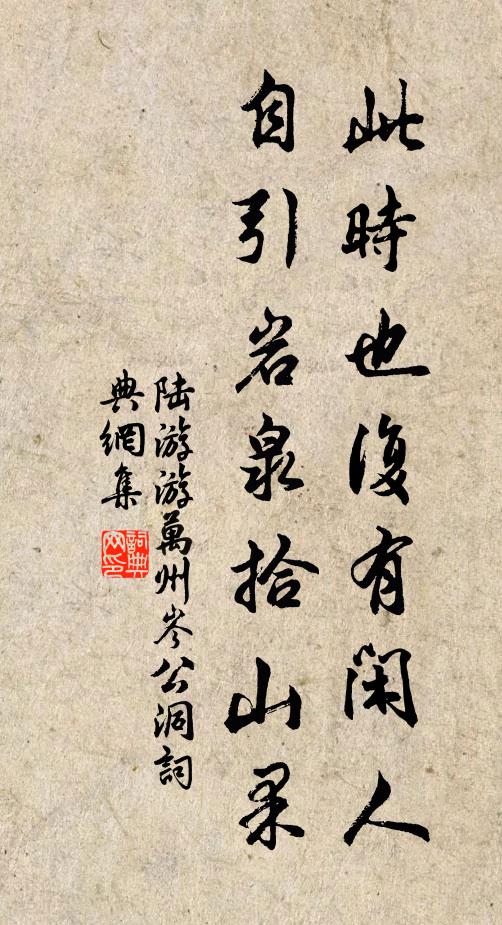 此時也復有閑人
自引岩泉拾山果
陆游游萬州岑公洞詞
典網集
詞典网印